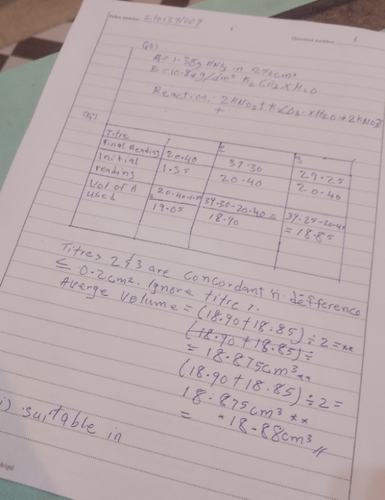 Index number
Question number 1
Q1)
A = 1.38g HNO3 in 250cm3
B = 10.84g/dm3 K2CO3 xH2O
Reaction: 2HNO3 + K2CO3 · xH2O → 2KNO3
+
Q1)
Titre 1 2 3
Final Reading 20.40 39.30 29.25
Initial reading 1.35 20.40 20.40
Vol of A used 39.30-20.40= 39.25-20.40
19.05 18.90 = 18.85
Titres 2 & 3 are concordant difference
≤ 0.2cm3. Ignore titre 1.
Averge Volume = (18.90+18.85)÷2=**
(18.90+18.85)÷
= 18.875cm3 **
(18.90+18.85)÷2=
18.875cm3 **
= 18.88cm3
i) suitable in